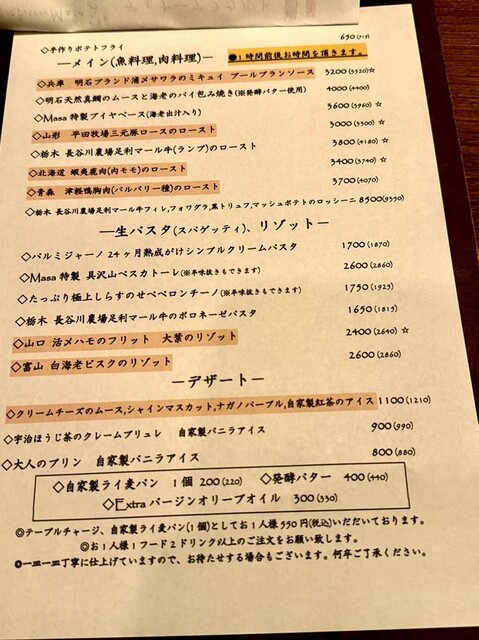 ◇手作りポテトフライ 650(715)
―メイン(魚料理,肉料理)― ●1時間前後お時間を頂きます。
◇兵庫 明石ブランド浦〆サワラのミキュイ ブールブランソース 3200(3520)☆
◇明石天然真鯛のムースと海老のパイ包み焼き(※発酵バター使用) 4000(4400)
◇Masa 特製ブイヤベース(海老出汁入り) 3600(3960)☆
◇山形 平田牧場三元豚ロースのロースト 3000(3300)☆
◇栃木 長谷川農場足利マール牛(ランプ)のロースト 3800(4180)☆
◇北海道 蝦夷鹿肉(内モモ)のロースト 3400(3740)☆
◇青森 津軽鴨胸肉(バルバリー種)のロースト 3700(4070)
◇栃木 長谷川農場足利マール牛フィレ,フォワグラ,黒トリュフ,マッシュポテトのロッシーニ 8500(9350)
―生パスタ(スパゲッティ)、リゾット―
◇パルミジャーノ24ヶ月熟成がけシンプルクリームパスタ 1700(1870)
◇Masa 特製 具沢山ペスカトーレ(※辛味抜きもできます) 2600(2860)
◇たっぷり極上しらすのせペペロンチーノ(※辛味抜きもできます) 1750(1925)
◇栃木 長谷川農場足利マール牛のボロネーゼパスタ 1650(1815)
◇山口 活〆ハモのフリット 大葉のリゾット 2400(2640)☆
◇富山 白海老ビスクのリゾット 2600(2860)
―デザート―
◇クリームチーズのムース,シャインマスカット,ナガノパープル,自家製紅茶のアイス 1100(1210)
◇宇治ほうじ茶のクレームブリュレ 自家製バニラアイス 900(990)
◇大人のプリン 自家製バニラアイス 800(880)
◇自家製ライ麦パン 1個 200(220) ◇発酵バター 400(440)
◇Extra バージンオリーブオイル 300(330)
◎テーブルチャージ、自家製ライ麦パン(1個)としてお1人様550円(税込)いただいております。
◎お1人様1フード2ドリンク以上のご注文をお願い致します。
◎一皿一皿丁寧に仕上げていますので、お待たせする場合もございます。何卒ご了承ください。